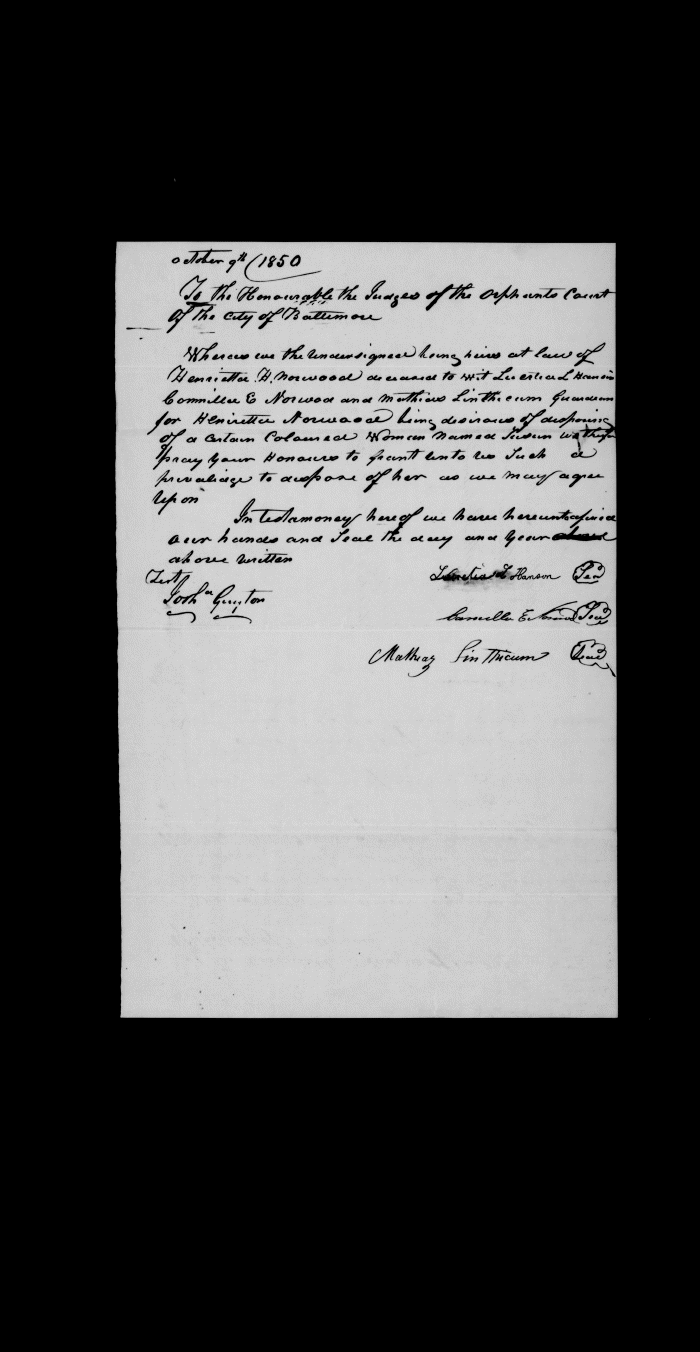 October 9th (1850
To the Honourable the Judges of the Orphants Court
Of the City of Baltimore
Whereas we the undersigned being heirs at law of
Henrietta H. Norwood deceased to wit Lucretia L Hanson
Cammillia E Norwod and Mathias Linthicum Guardian
for Heniretta Norwood being desirous of desposing
of a certain Coloured Woman Named Susan we
pray your Honours to grant unto us Such a
prevaliage to dispose of her as we may agree
Upon
In testamoney hereof we have hereunto
our hands and Seal the day and Year
above written
Test
Joshª Guyton
Lucretia L Hanson Seal
Camilla E. Norwood Seal
Mathias Linthicum Seal